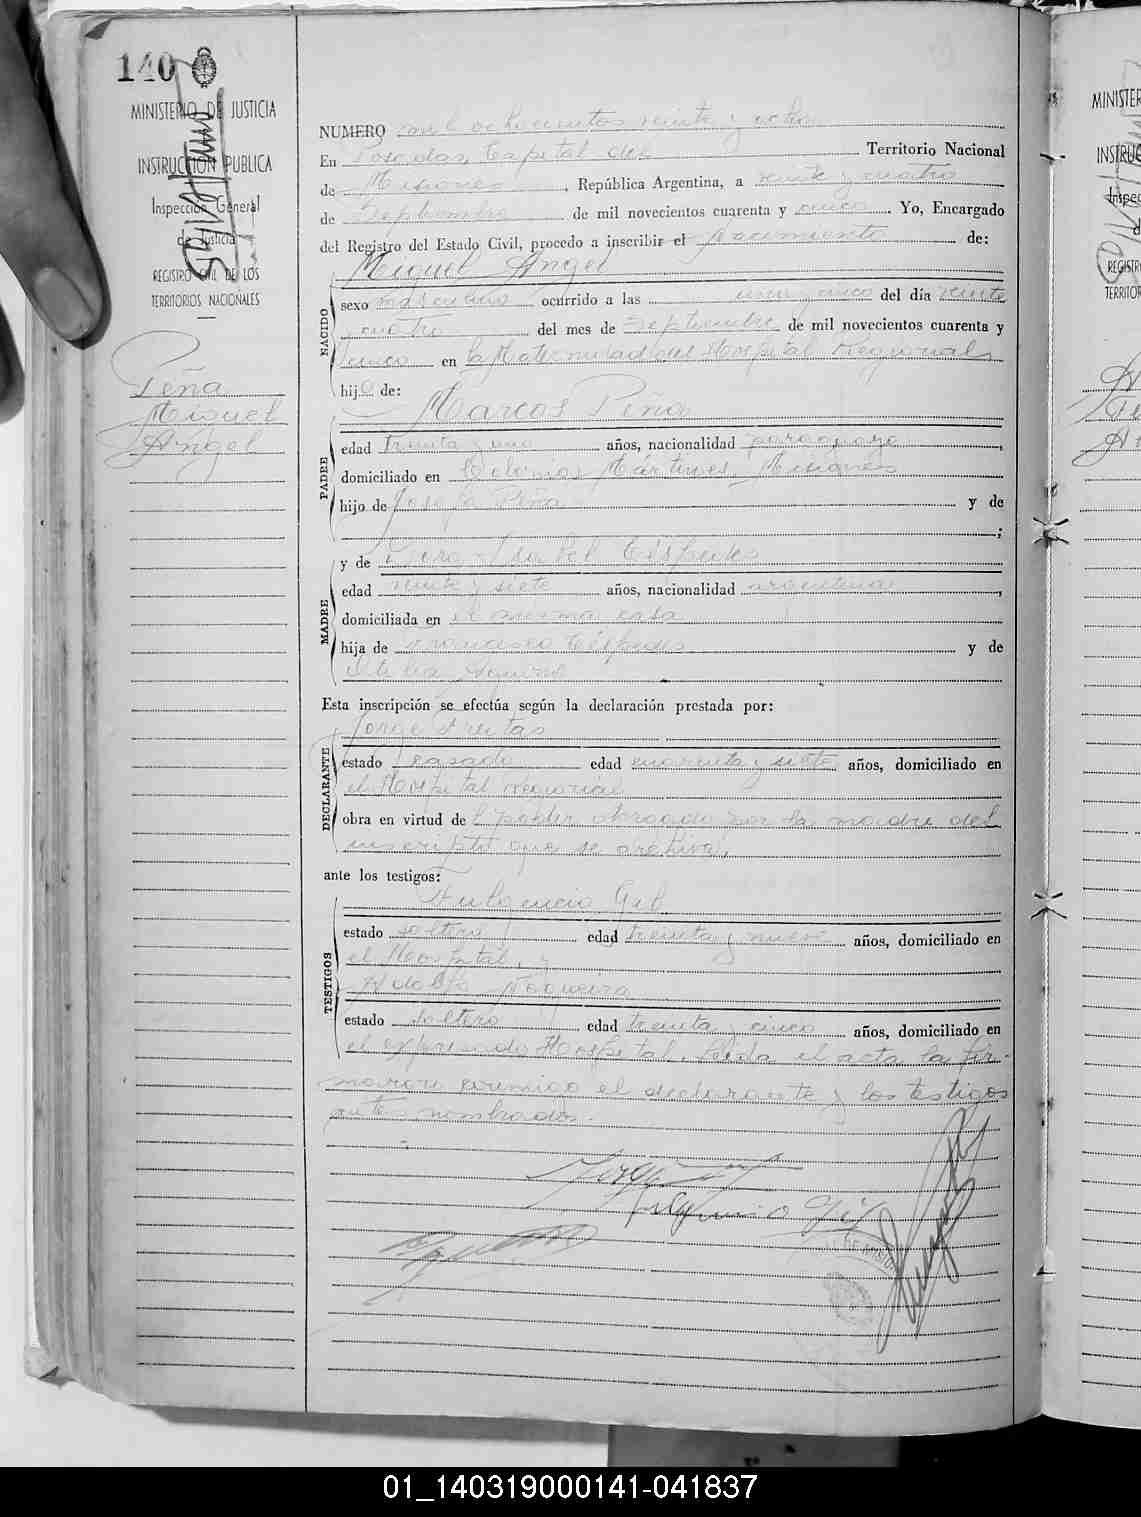 140
MINISTERIO DE JUSTICIA
INSTRUCCIÓN PUBLICA
Inspección General
de Justicia
REGISTRO CIVIL DE LOS
TERRITORIOS NACIONALES
Peña
Miguel
Angel
NUMERO mil ochocientos veinte y ocho
En Posadas, Capital del Territorio Nacional
de Misiones, República Argentina, a veinte y cuatro
de Septiembre de mil novecientos cuarenta y cinco. Yo, Encargado
del Registro del Estado Civil, procedo a inscribir el Nacimiento de:
Miguel Angel
NACIDO
sexo masculino ocurrido a las una y cinco del día veinte
y cuatro del mes de Septiembre de mil novecientos cuarenta y
cinco en la Maternidad del Hospital Regional
hijo de:
Marcos Peña
PADRE
edad treinta y uno años, nacionalidad paraguaya,
domiciliado en Colonia Mártires, Misiones
hijo de Josefa Peña y de
;
y de Isabel Céspedes
MADRE
edad veinte y siete años, nacionalidad argentina,
domiciliada en la misma casa
hija de Francisco Céspedes y de
Aguirre
Esta inscripción se efectúa según la declaración prestada por:
Jorge Freitas
DECLARANTE
estado casado edad cuarenta y siete años, domiciliado en
el Hospital Regional
obra en virtud del poder otorgado por la madre del
inscripto que se archiva,
ante los testigos:
Fulgencio Gil
TESTIGOS
estado soltero edad treinta y nueve años, domiciliado en
el Hospital, y
Adolfo Nogueira
estado soltero edad treinta y cinco años, domiciliado en
el expresado Hospital. Leida el acta la fir-
maron conmigo el declarante y los testigos
antes nombrados.
Fulgencio Gil
MINISTER
INSTRUC
Inspec
d
REGISTR
TERRITOR
01_140319000141-041837